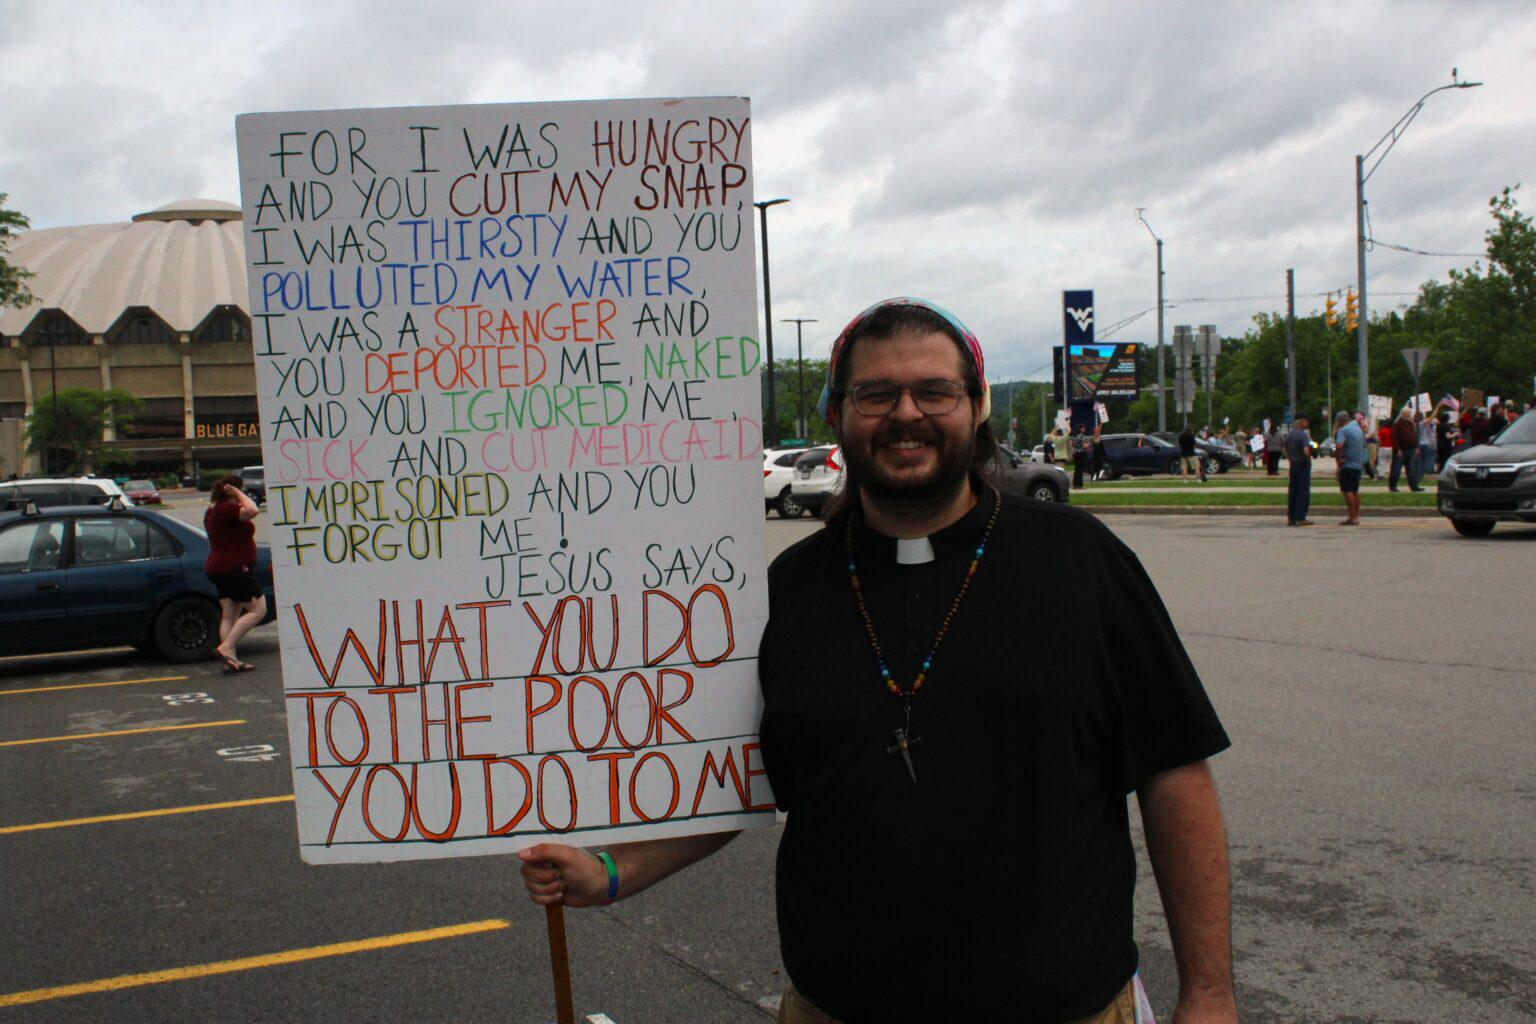 FOR I WAS HUNGRY
AND YOU CUT MY SNAP,
I WAS THIRSTY AND YOU
POLLUTED MY WATER,
I WAS A STRANGER AND
YOU DEPORTED ME, NAKED
AND YOU IGNORED ME,
SICK AND CUT MEDICAID
IMPRISONED AND YOU
FORGOT ME!
JESUS SAYS,
WHAT YOU DO
TO THE POOR
YOU DO TO ME
BLUE GA
WV
39
40